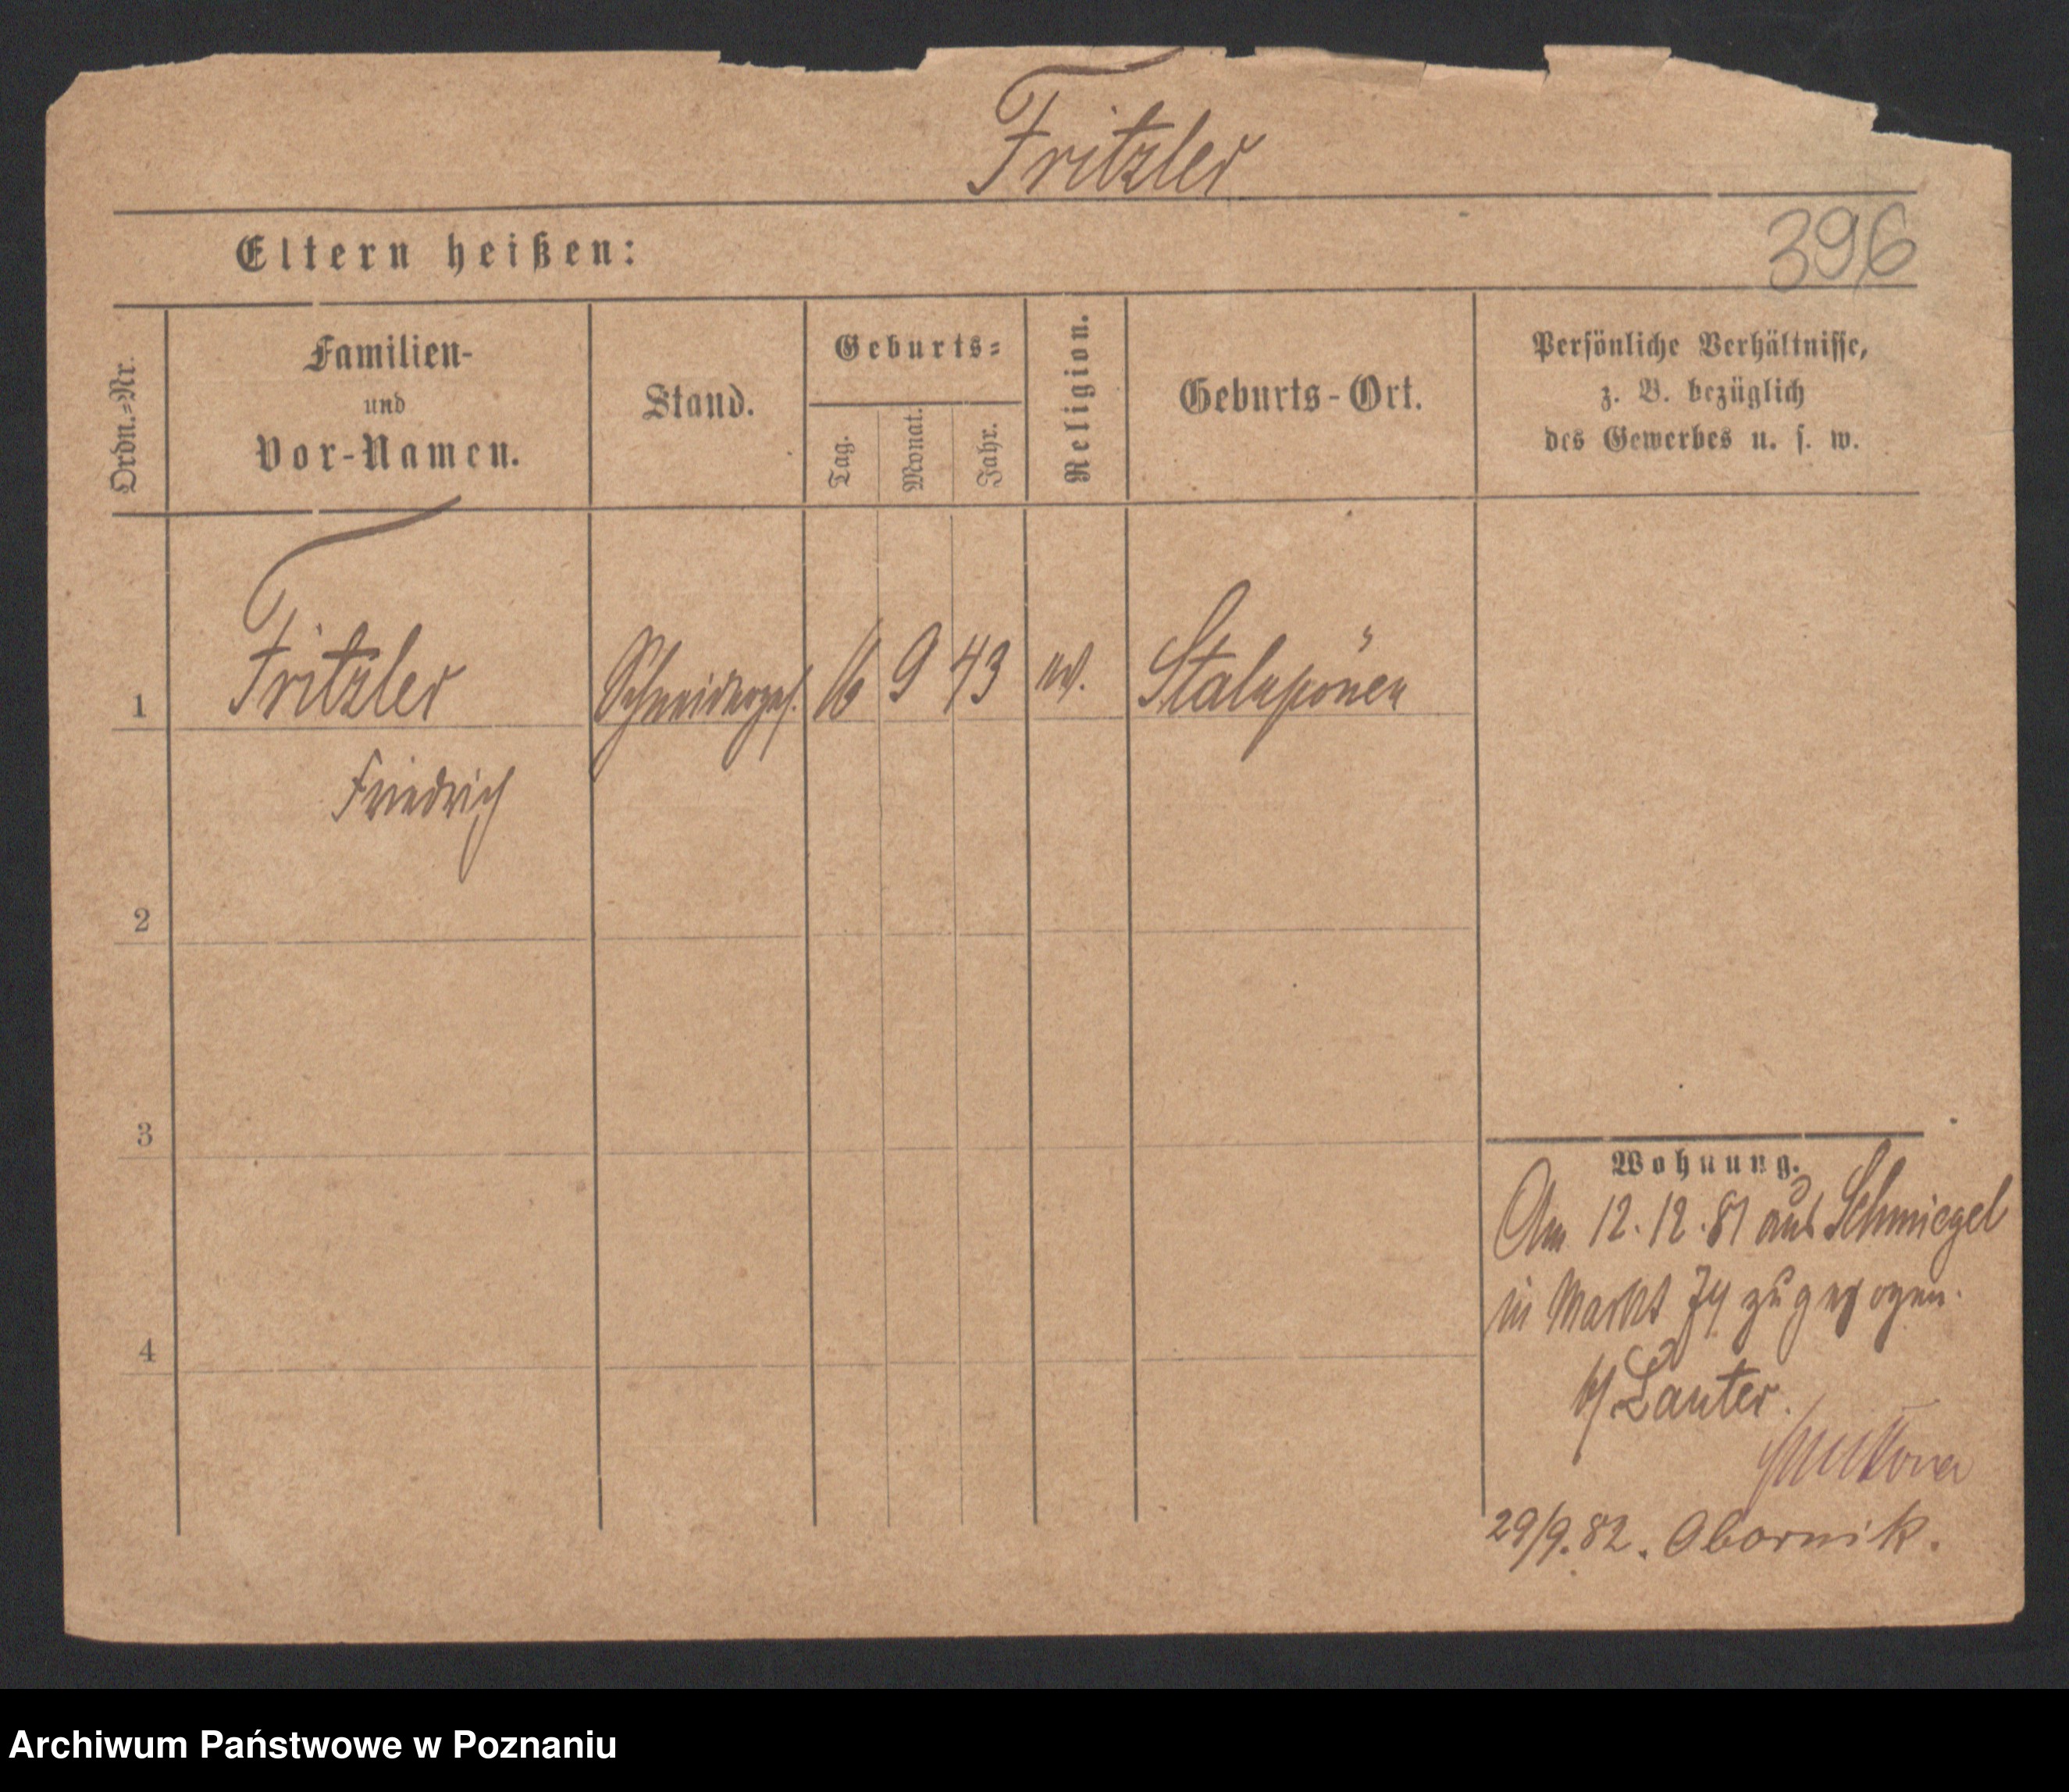 Fritzler
396
Eltern heißen:
Ordn.=Nr.
Familien-
und
Vor-Namen.
Stand.
Geburts=
Tag.
Monat.
Jahr.
Religion.
Geburts-Ort.
Persönliche Verhältnisse,
z. B. bezüglich
des Gewerbes u. s. w.
1 Fritzler Schneiderges. 16 9 43 ev. Stalupönen
Friedrich
2
3
4
Wohnung.
Am 12.12.81 aus Schmiegel
in Markt 74 zugezogen.
b/ Lauter.
29/9.82. Obornik.
Archiwum Państwowe w Poznaniu